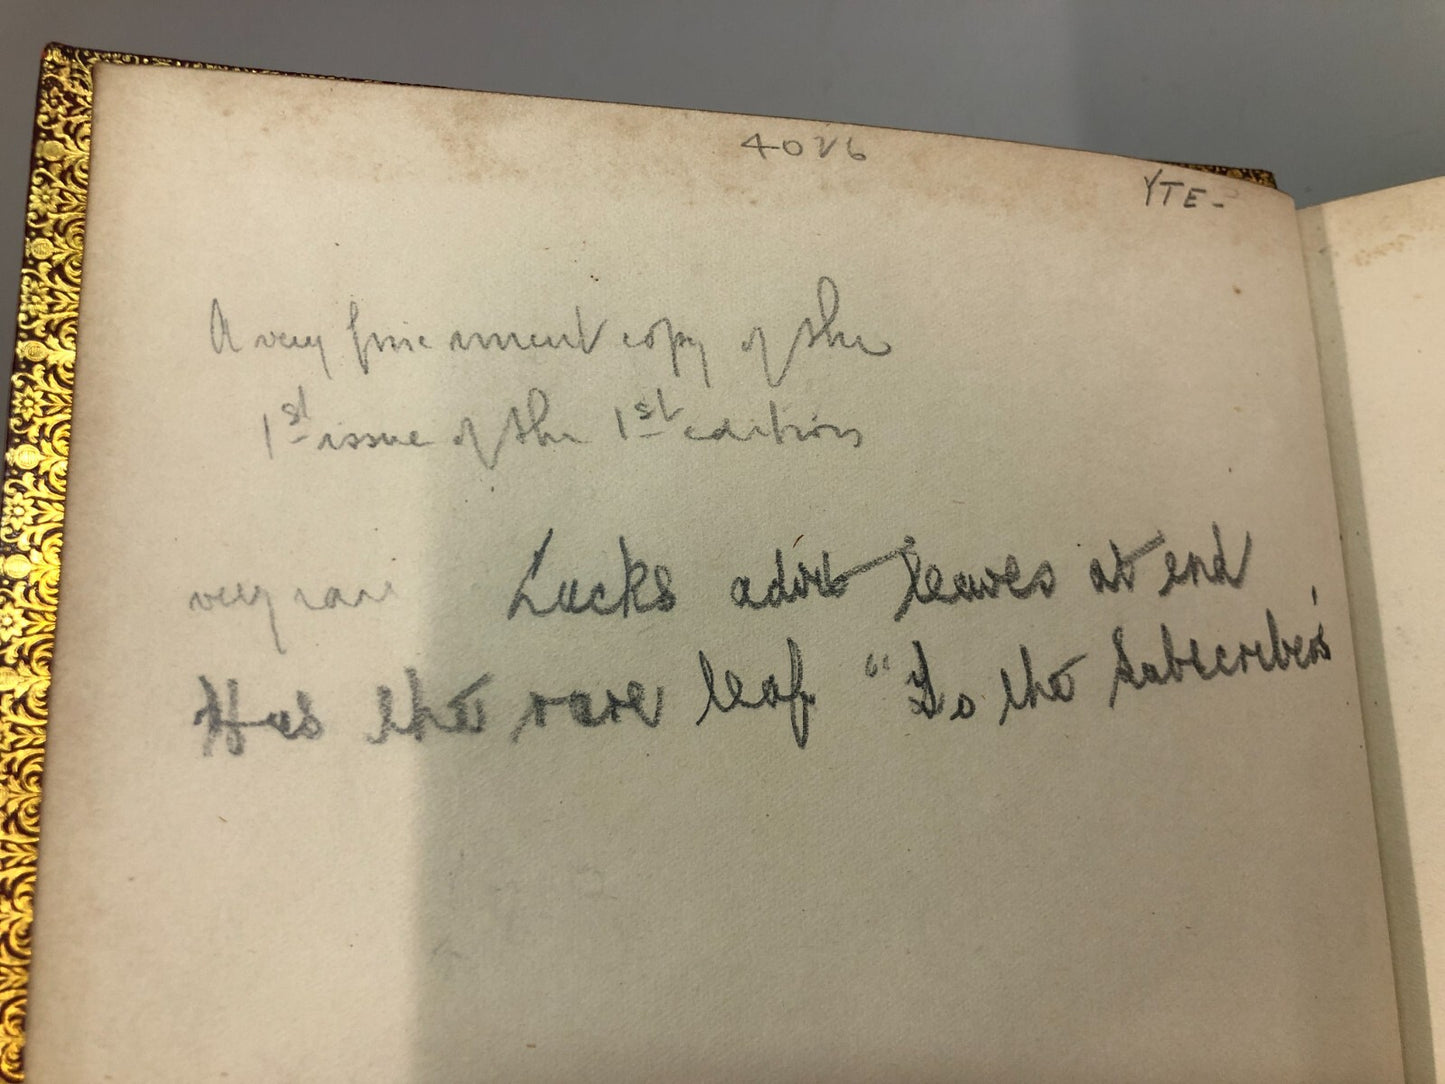 4026
YTE-
A very fine uncut copy of the
1st issue of the 1st edition
very rare Lacks advt leaves at end
Has the rare leaf "To the Subscriber's